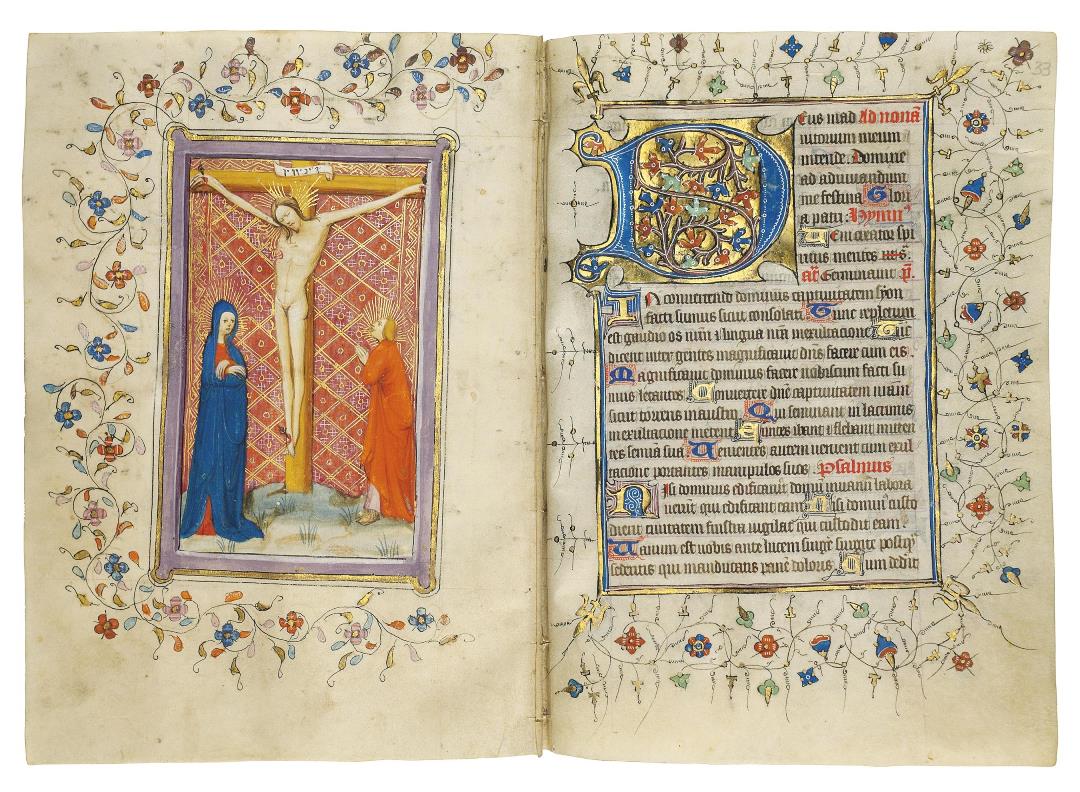 INRI
33
Deus in ad Ad nonā
iutorium meum
intende. Domine
ad adiuuandum
me festina. Glori
a patri. Hymn'
Veni creator spi
ritus mentes
añ Germinauit p̄.
In conuertendo dominus captiuitatem syon
facti sumus sicut consolati. Tunc repletum
est gaudio os nr̄m & lingua nr̄a in exultacione. Tūc
dicent inter gentes magnificauit dn̄s facere cum eis.
Magnificauit dominus facere nobiscum facti su
mus letantes. Conuertere dn̄e captiuitatem nr̄am
sicut torrens in austro. Qui seminant in lacrimis
in exultacione metent. Euntes ibant & flebant mitten
tes semina sua. Uenientes autem uenient cum exul
tacione portantes manipulos suos. Psalmus
Nisi dominus edificauit domū in uanū labora
uerunt qui edificant eam. Nisi domin' custo
dierit ciuitatem frustra uigilat qui custodit eam.
Uanum est uobis ante lucem surgē surgite postq̄
sederitis qui manducatis panē doloris. Cum dedit